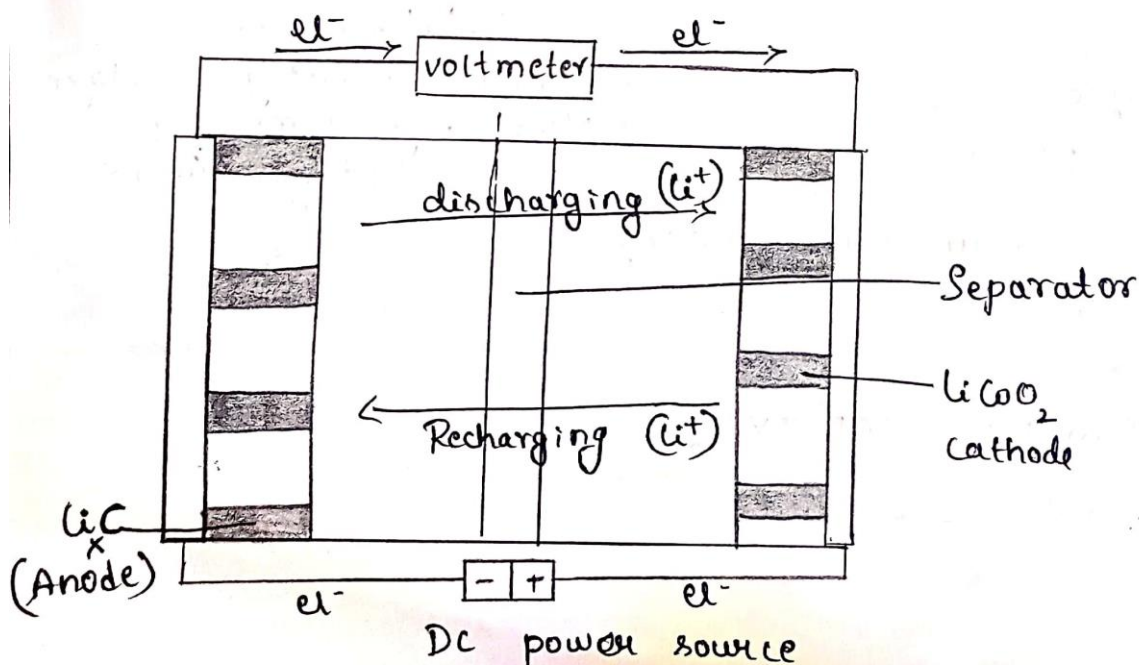 el⁻
el⁻
voltmeter
discharging (Li⁺)
Separator
LiCoO₂
cathode
Recharging (Li⁺)
LiₓC
(Anode)
- +
el⁻
el⁻
DC power source